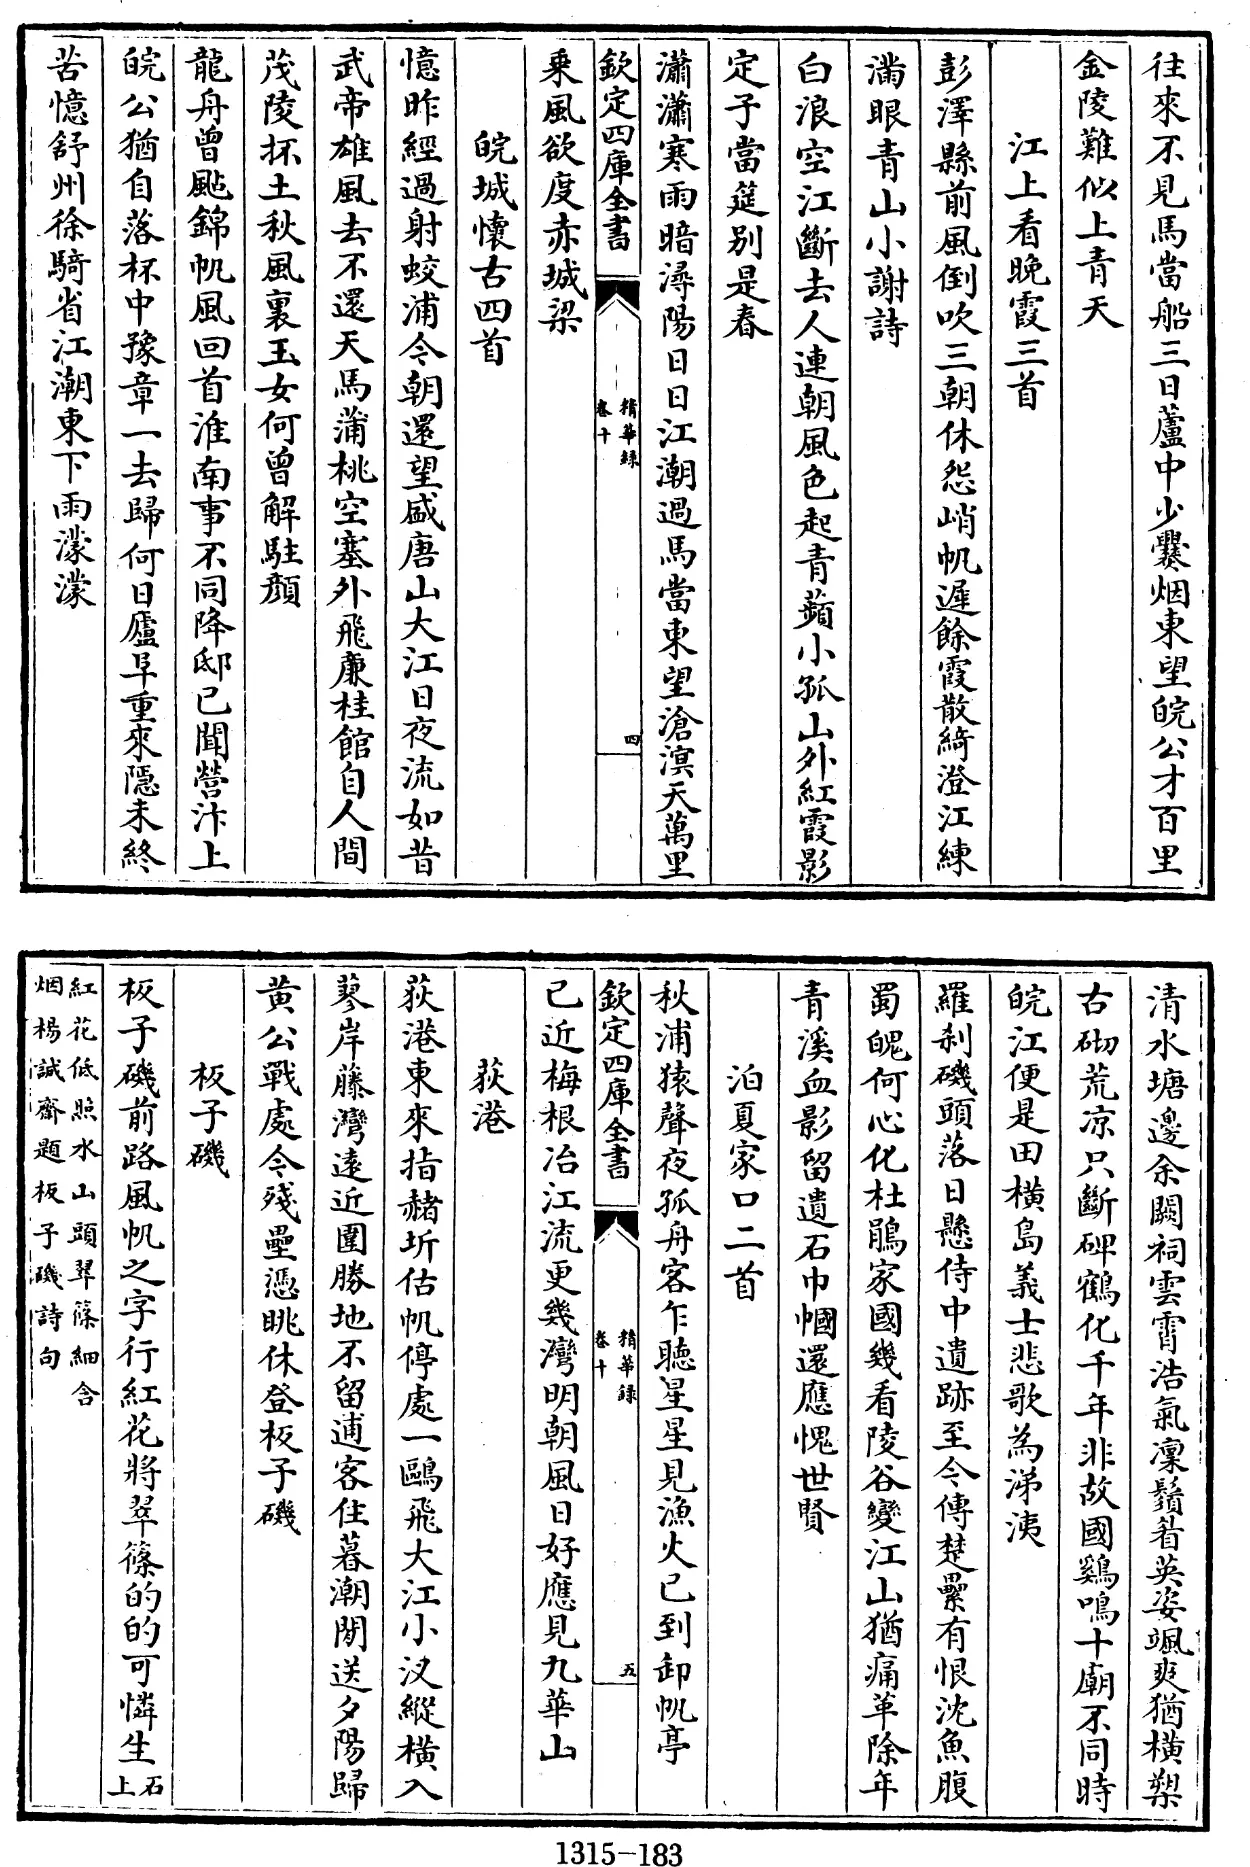 往來不見馬當船三日蘆中少爨烟東望皖公才百里
金陵難似上青天
江上看晚霞三首
彭澤縣前風倒吹三朝休怨峭帆遲餘霞散綺澄江練
滿眼青山小謝詩
白浪空江斷去人連朝風色起青蘋小孤山外紅霞影
定子當筵別是春
瀟瀟寒雨暗潯陽日日江潮過馬當東望滄溟天萬里
欽定四庫全書
精華録
卷十
四
乗風欲度赤城梁
皖城懷古四首
憶昨經過射蛟浦今朝還望盛唐山大江日夜流如昔
武帝雄風去不還天馬蒲桃空塞外飛亷桂館自人間
茂陵抔土秋風裏玉女何曾解駐顔
龍舟曾颭錦帆風回首淮南事不同降邸已聞營汴上
皖公猶自落杯中豫章一去歸何日廬阜重來隱未終
苦憶舒州徐騎省江潮東下雨濛濛
清水塘邊余闕祠雲霄浩氣凜鬚眉英姿颯爽猶横槊
古砌荒凉只斷碑鶴化千年非故國鷄鳴十廟不同時
皖江便是田横島義士悲歌為涕洟
羅刹磯頭落日懸侍中遺跡至今傳楚纍有恨沈魚腹
蜀魄何心化杜鵑家國幾看陵谷變江山猶痛革除年
青溪血影留遺石巾幗還應愧世賢
泊夏家口二首
秋浦猿聲夜孤舟客乍聽星星見漁火已到卸帆亭
欽定四庫全書
精華録
卷十
五
已近梅根冶江流更幾灣明朝風日好應見九華山
荻港
荻港東來指赭圻估帆停處一鷗飛大江小汊縱横入
蓼岸藤灣遠近圍勝地不留逋客住暮潮閒送夕陽歸
黄公戰處今殘壘憑眺休登板子磯
板子磯
板子磯前路風帆之字行紅花將翠篠的的可憐生石上
紅花低照水山頭翠篠細含
烟楊誠齋題板子磯詩句
1315-183